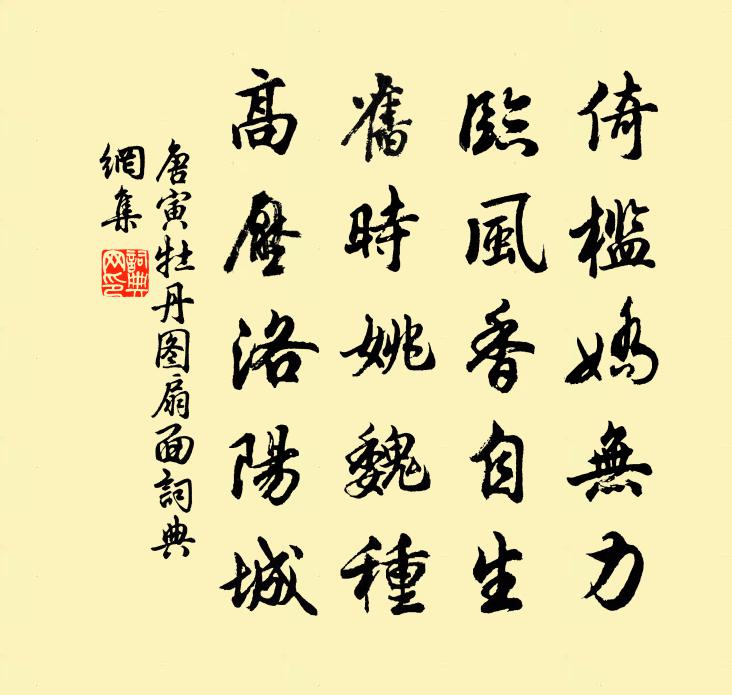 倚檻嬌無力
臨風香自生
舊時姚魏種
高壓洛陽城
唐寅牡丹图扇面詞典
網集
詞典
网印